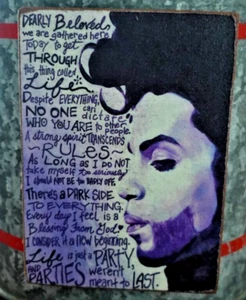 DEARLY Beloved,
we are gathered here
Today to get
THROUGH
this thing called
Life
Despite EVERYTHING,
NO ONE can
dictate
WHO YOU ARE to other
people.
A strong spirit TRANSCENDS
~RULES~
AS LONG AS I DO NOT
take myself too seriously
I should NOT BE too BADLY OFF.
There's A DARK SIDE
TO EVERYTHING.
Every day I feel is a
Blessing from God.
I CONSIDER it a new beginning.
Life is just a PARTY,
AND PARTIES weren't
meant to LAST.